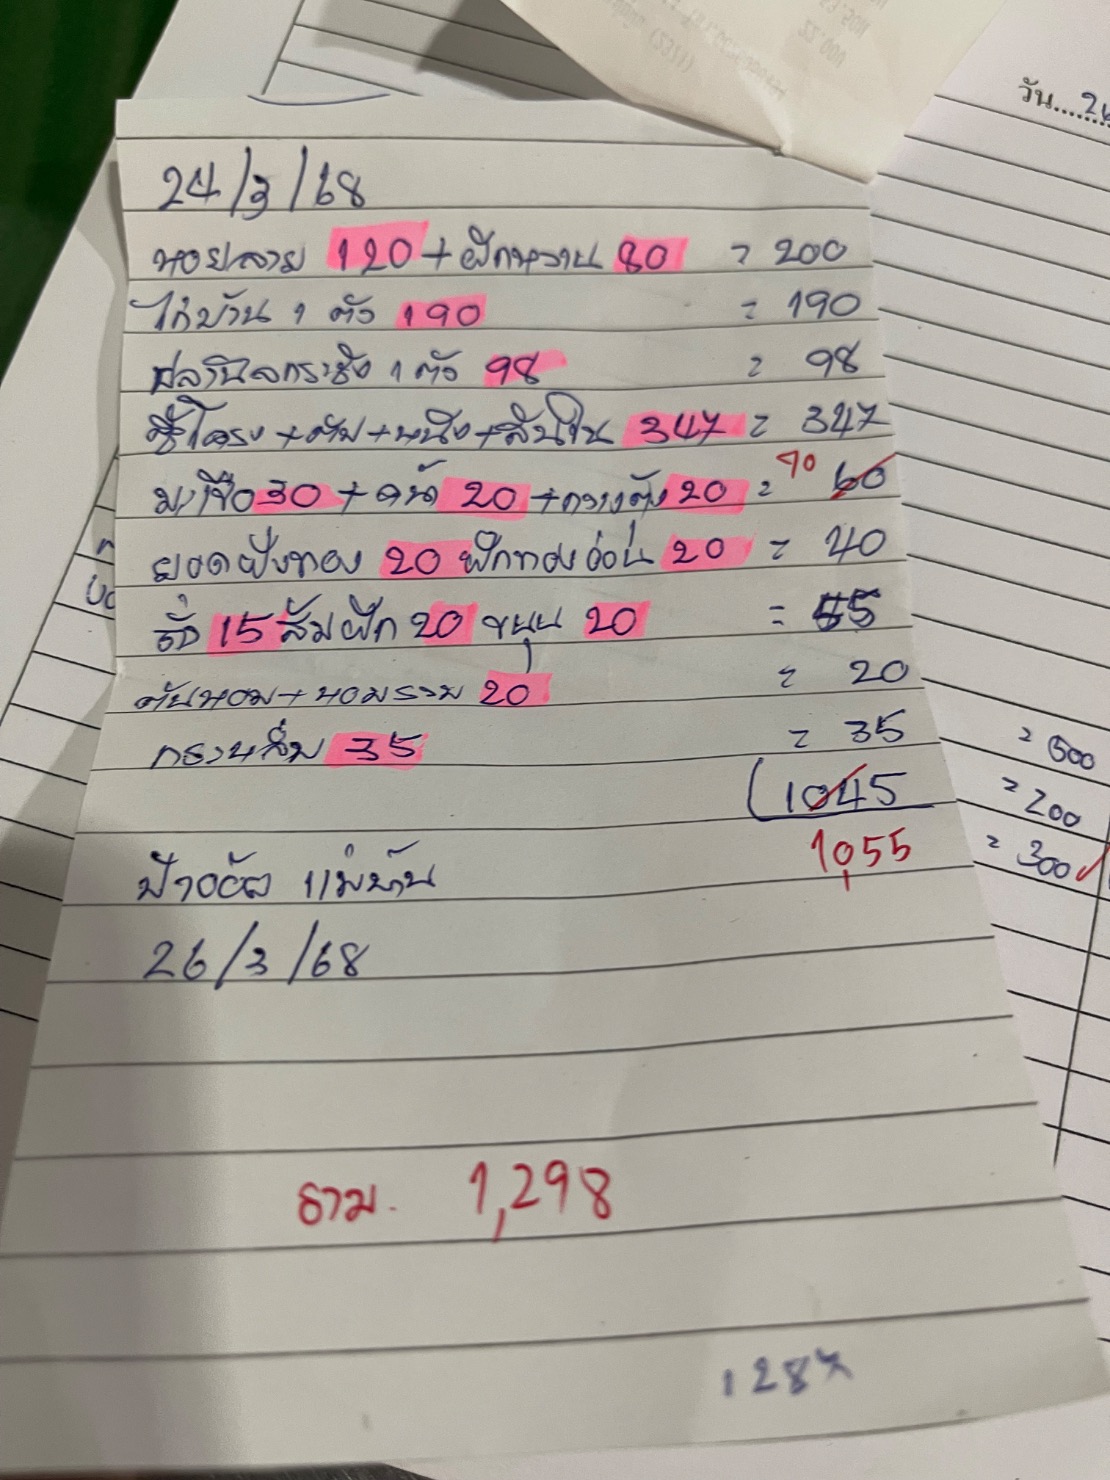 วัน.....26
24/3/68
หอยลาย 120 + ฝักหวาน 80 = 200
ไก่บ้าน 1 ตัว 190 = 190
ปลานิลกระชัง 1 ตัว 98 = 98
ซี่โครง + ตับ + หนึง + สันใน 347 = 347
มะเขือ 30 + คน้ำ 20 + กวางตุ้ง 20 = 70 60
ยอดฝักทอง 20 ฝักทองอ่อน 20 = 40
ถั่ว 15 ส้มฝัก 20 ขนุน 20 = 55
ต้นหอม + หอมรวม 20 = 20
35 = 35
1045
1055
= 500
= 200
= 300
ป้าอ้อ แม่บ้าน
26/3/68
รวม. 1,298
128